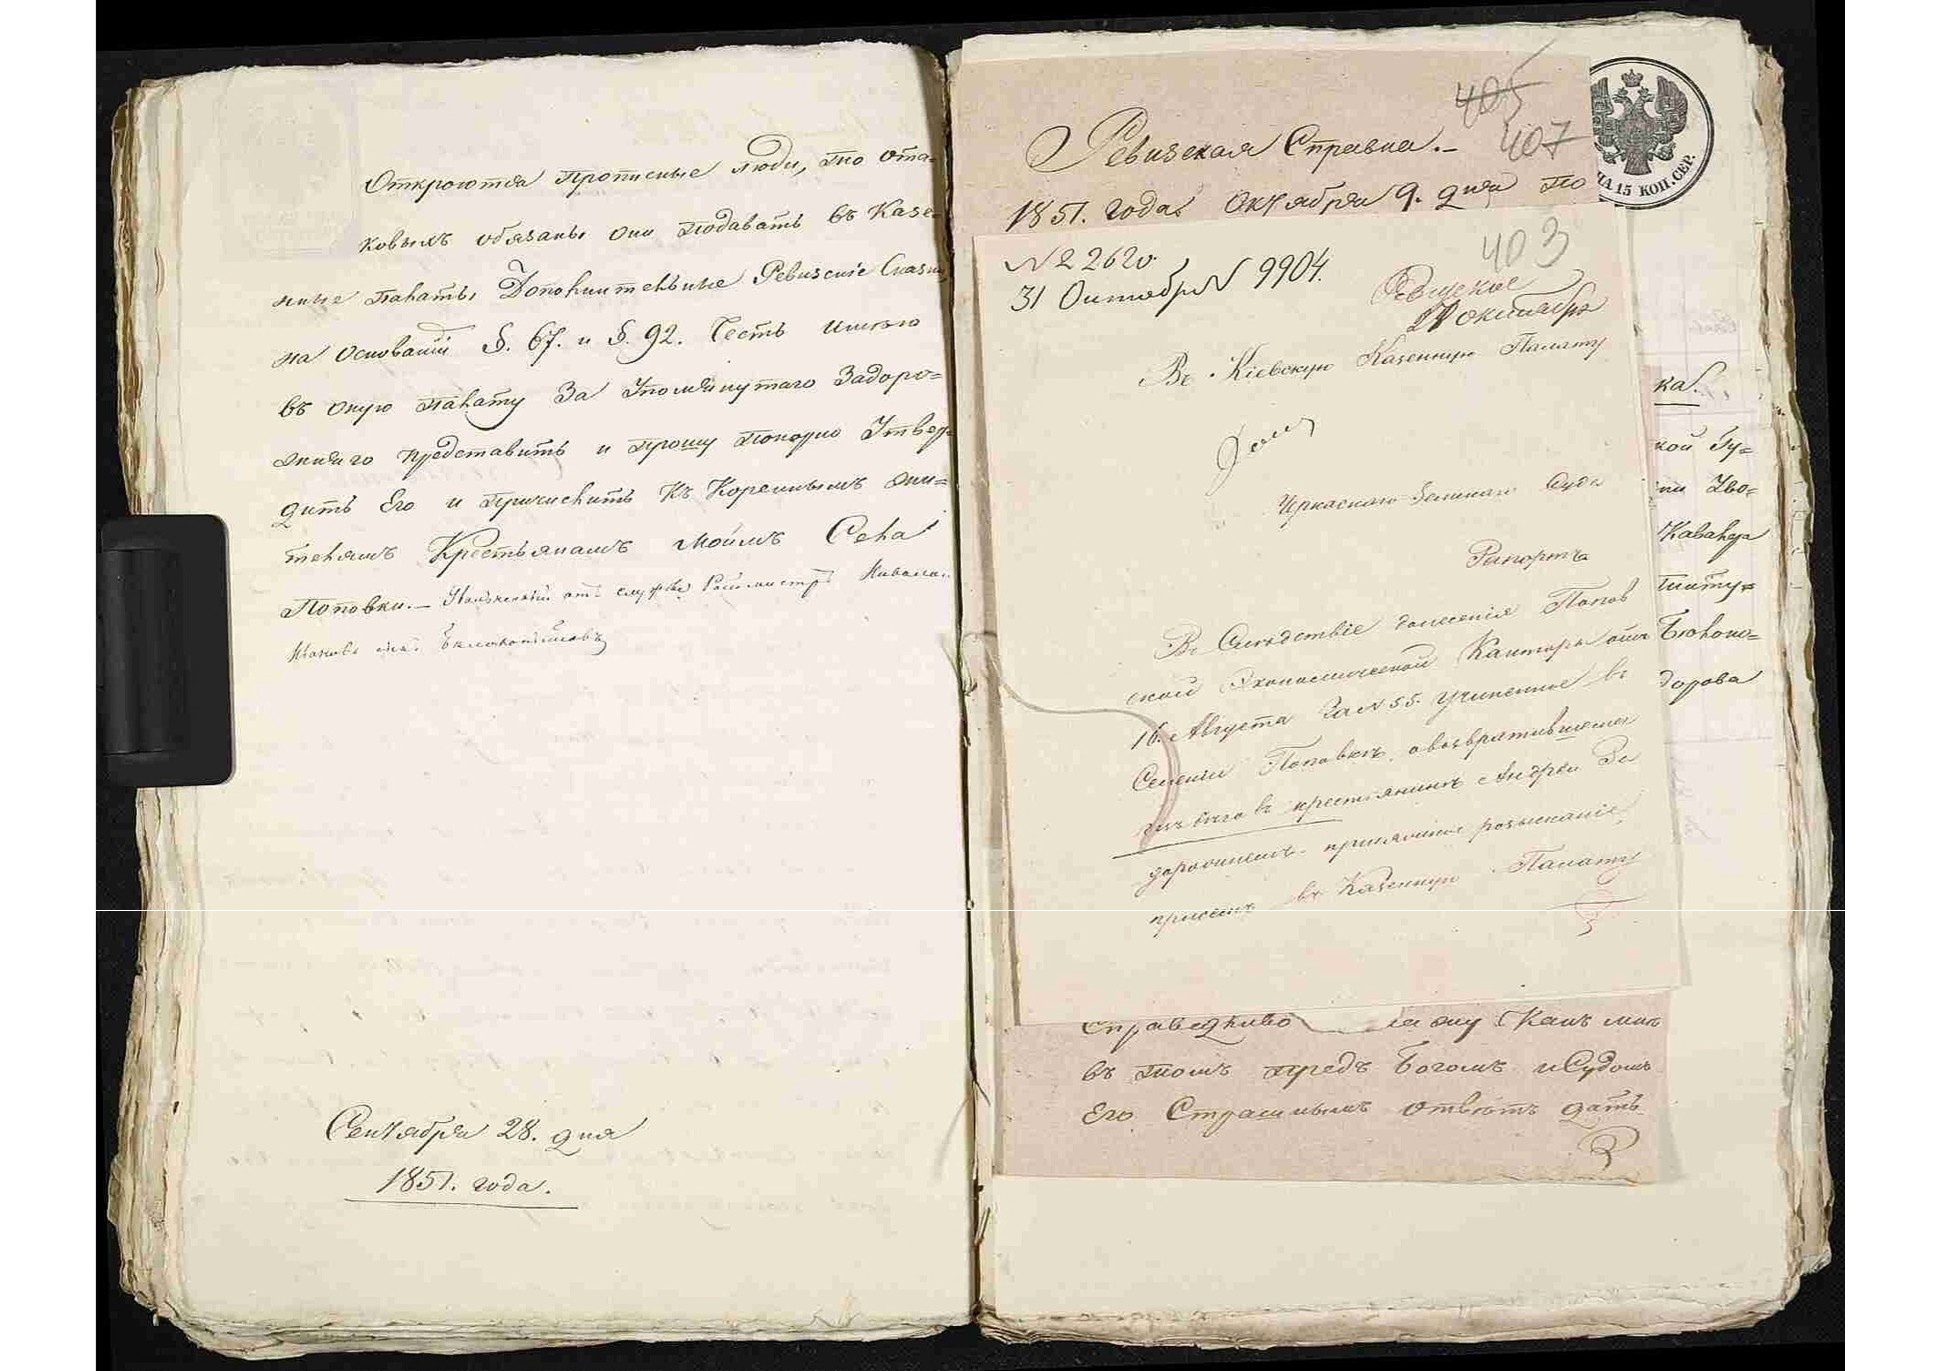 Откроются прописные люди, то ота=
ковыхъ обязаны они подавать въ Казен
ныне палаты Дополнительные Ревизскіе Сказки,
на Основаніи §. 67. и §. 92. Честь имѣю
въ оную палату За Упомянутаго Задоро=
жняго представить и прошу покорно Утвер
дить Его и причислить Къ Кореннымъ жи=
телямъ Крестьянамъ моимъ Села
Поповки.— отъ службы Ротмистръ
Сентября 28. дня
1851. года.
405
407
Ревизская Справка.—
1851. года Октября 9. дня по
НА 15 КОП. СЕР.
№ 22620
31 Октября № 9904.
403
Ревизское
Октября
Въ Кіевскую Казенную Палату
Черкаскаго Земскаго Суда
Рапортъ
Въ Слѣдствіе донесенія Попов
ской Экономической Канторы отъ
16. Августа за № 55. учиненное въ
Селеніи Поповкѣ, о возвратившемся
изъ бѣговъ крестьянинѣ Андреи За
дорожнемъ розысканіе,
въ Казенную Палату
ка.
кой Гу=
Уво=
Кавалера
титу=
Бѣлоко=
дорова
Справедливо Какъ мнѣ
въ томъ предъ Богомъ и Судомъ
Его Страшнымъ отвѣтъ дать